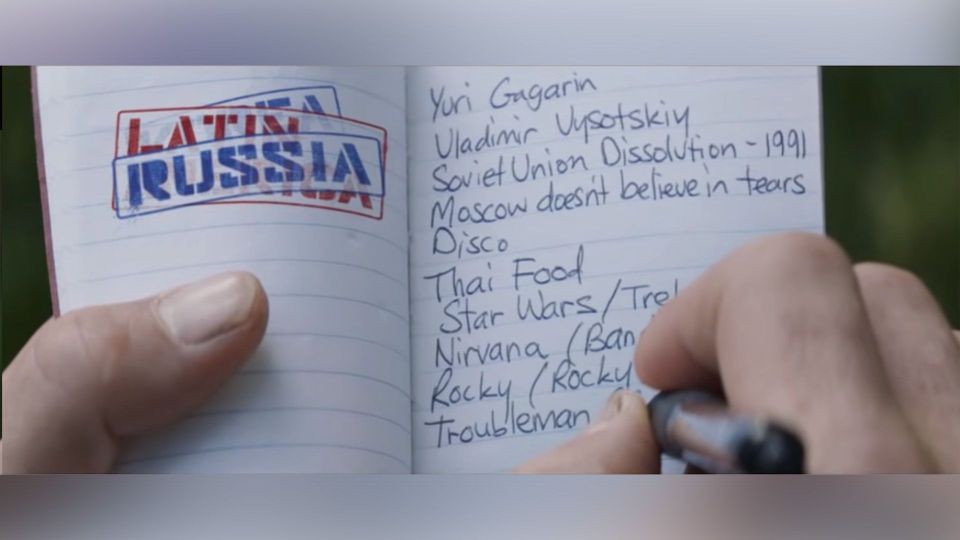 LATIN
RUSSIA
Yuri Gagarin
Vladimir Vysotskiy
Soviet Union Dissolution - 1991
Moscow doesn't believe in tears
Disco
Thai Food
Star Wars / Tre
Nirvana (Ban
Rocky (Rocky
Troubleman